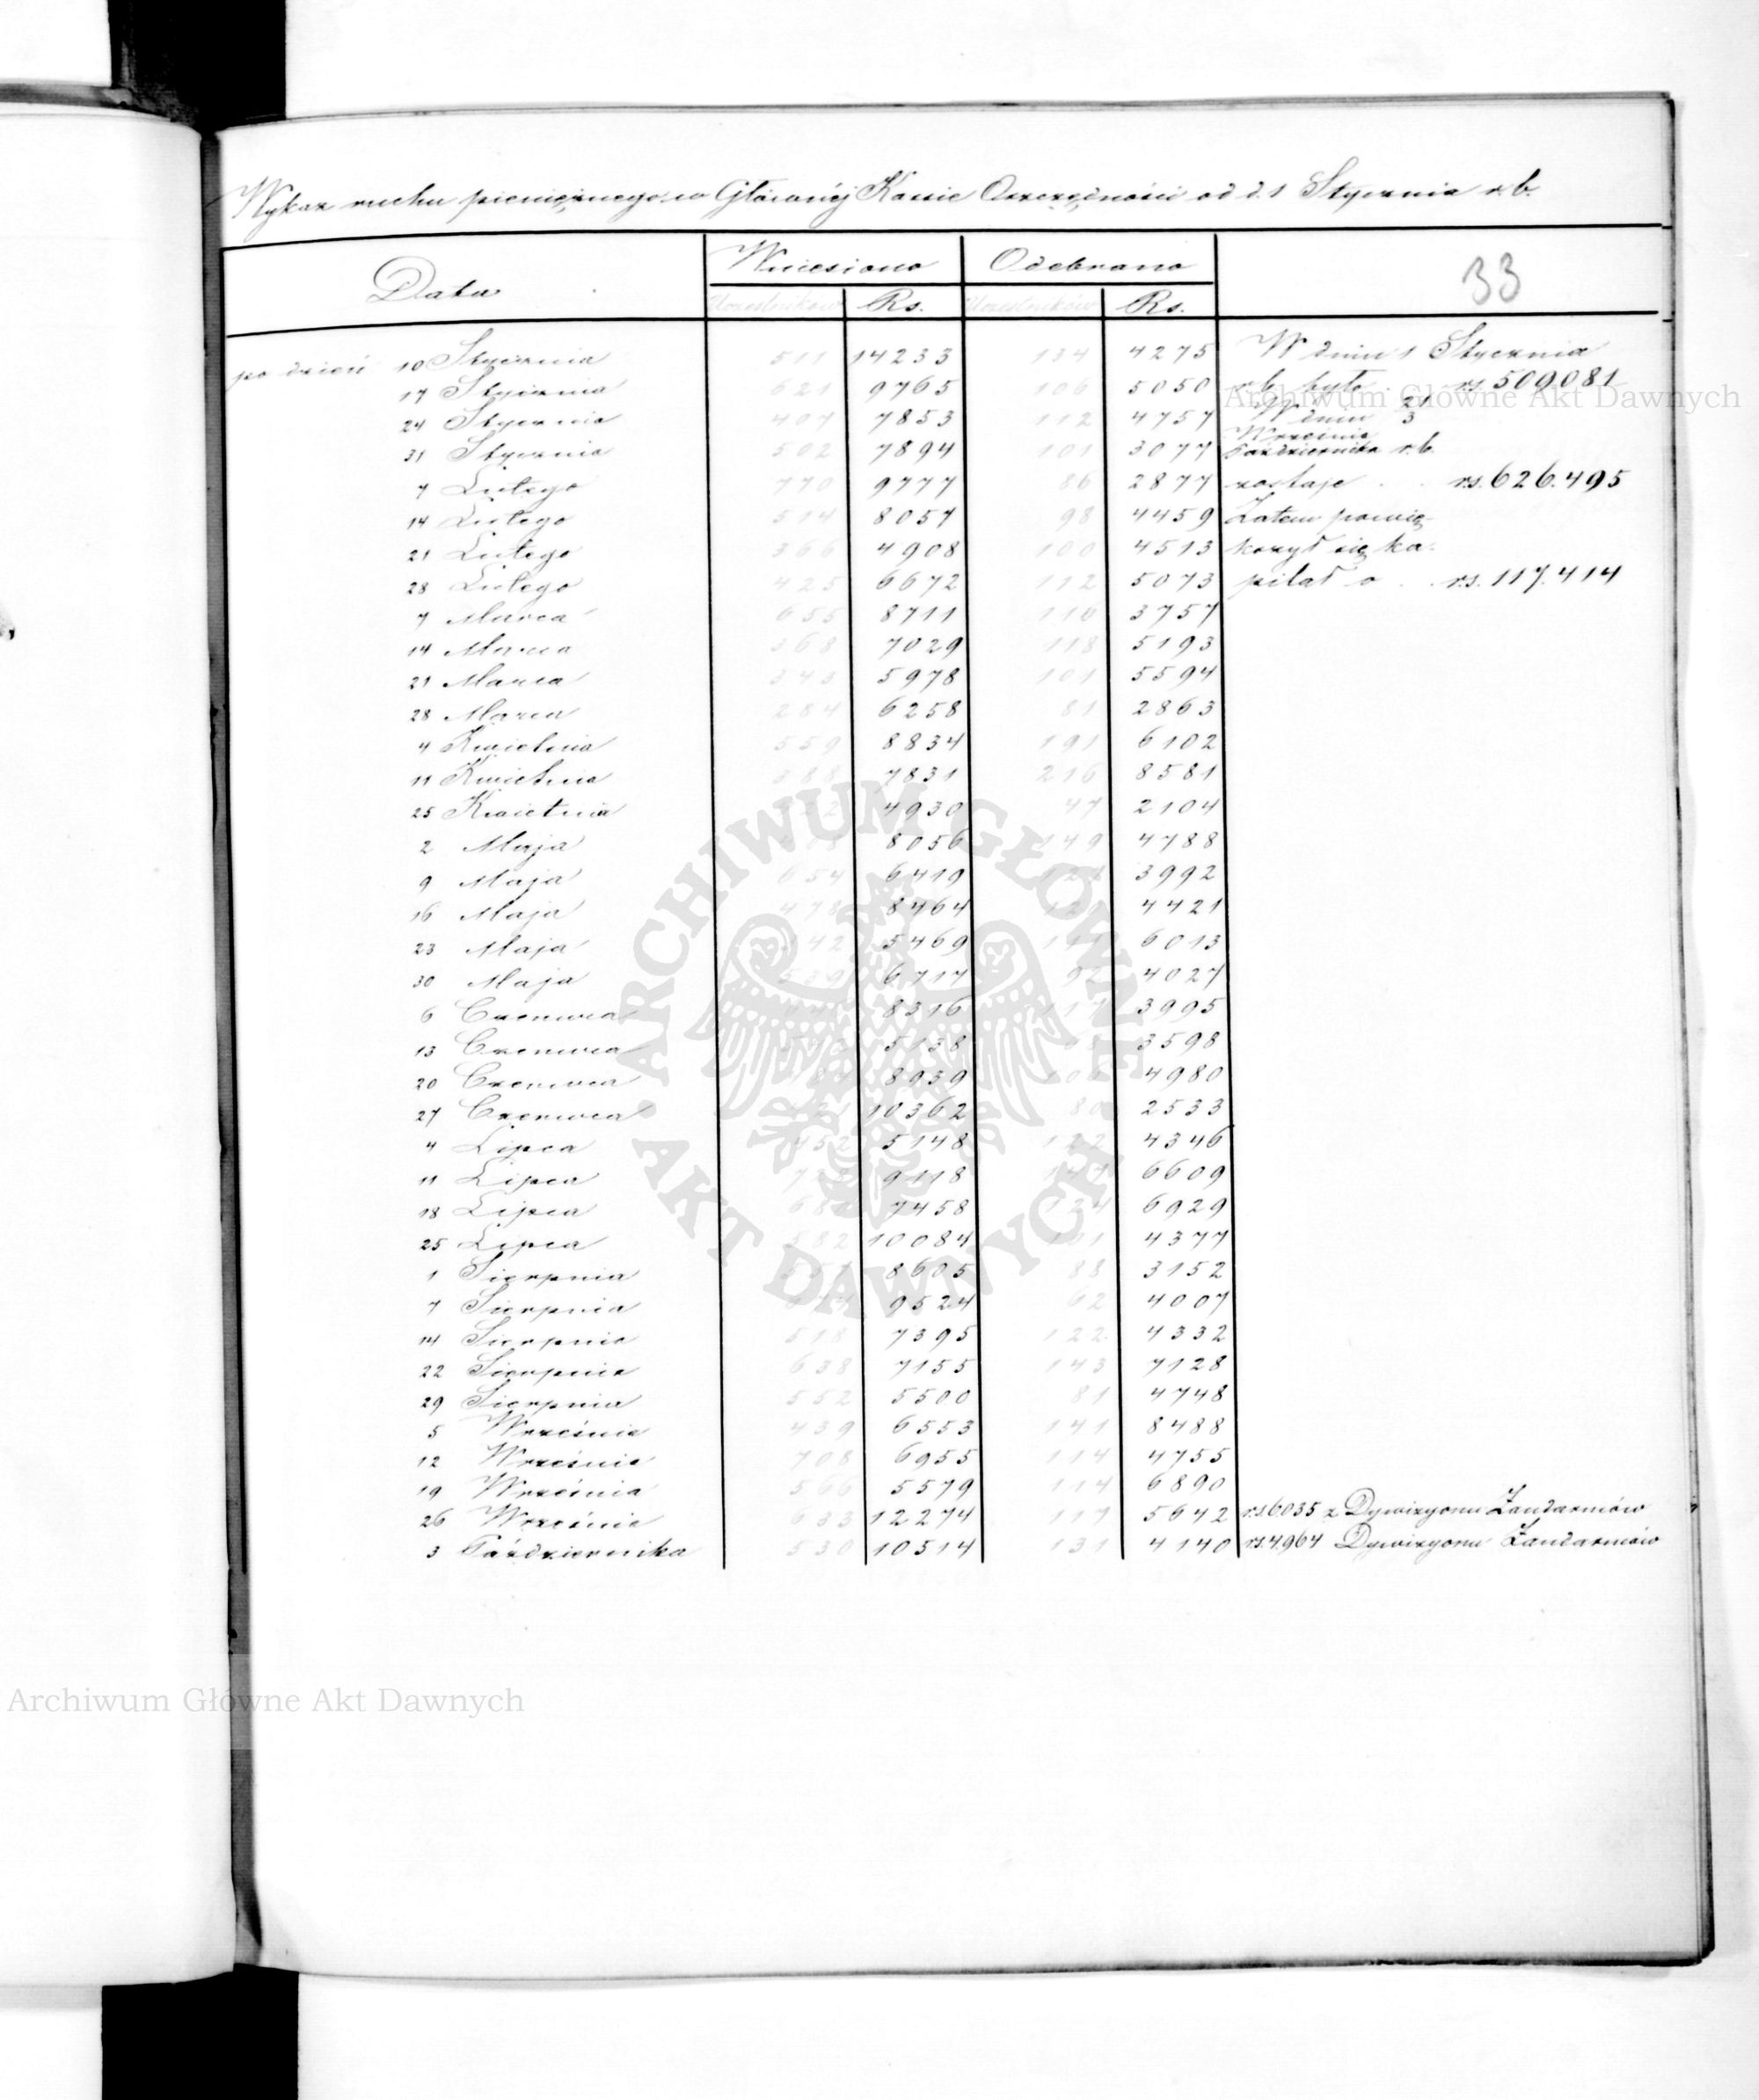 Wykaz ruchu pieniężnego w Głównéj Kassie Oszczędności od d. 1 Stycznia r. b.
Data Wniesiono Odebrano 33
Uczestników Rs. Uczestników Rs.
po dzień 10 Stycznia 511 14233 134 4275 W dniu 1 Stycznia
17 Stycznia 621 9765 106 5050 r. b. było rs. 509081
24 Stycznia 407 7853 112 4757 W dniu 21/3
31 Stycznia 502 7894 101 3077 Września/Października r. b.
7 Lutego 770 9777 86 2877 zostaje . . rs. 626.495
14 Lutego 514 8057 98 4459 Zatem powię-
21 Lutego 366 4908 100 4513 kszył się ka-
28 Lutego 425 6672 112 5073 pitał o . . rs. 117.414
7 Marca 655 8711 110 3757
14 Marca 368 7029 118 5193
21 Marca 343 5978 101 5594
28 Marca 284 6258 81 2863
4 Kwietnia 559 8834 191 6102
11 Kwietnia 388 7831 216 8581
25 Kwietnia 4930 47 2104
2 Maja 8056 149 4788
9 Maja 654 6419 3992
16 Maja 478 8464 4421
23 Maja 5469 6013
30 Maja 539 6717 92 4027
6 Czerwca 8316 117 3995
13 Czerwca 5138 3598
20 Czerwca 8939 4980
27 Czerwca 10362 80 2533
4 Lipca 452 5148 122 4346
11 Lipca 9118 6609
18 Lipca 7458 6929
25 Lipca 582 10084 101 4377
1 Sierpnia 8605 88 3152
7 Sierpnia 9524 62 4007
14 Sierpnia 518 7395 122 4332
22 Sierpnia 638 7155 143 7128
29 Sierpnia 552 5500 81 4748
5 Września 439 6553 141 8488
12 Września 708 6955 114 4755
19 Września 566 5579 114 6890
26 Września 633 12274 117 5642 rs. 6035 z Dywizyonu Żandarmów
3 Października 530 10514 131 4140 rs. 4964 Dywizyonu Żandarmów
Archiwum Główne Akt Dawnych
ARCHIWUM GŁÓWNE AKT DAWNYCH
Archiwum Główne Akt Dawnych